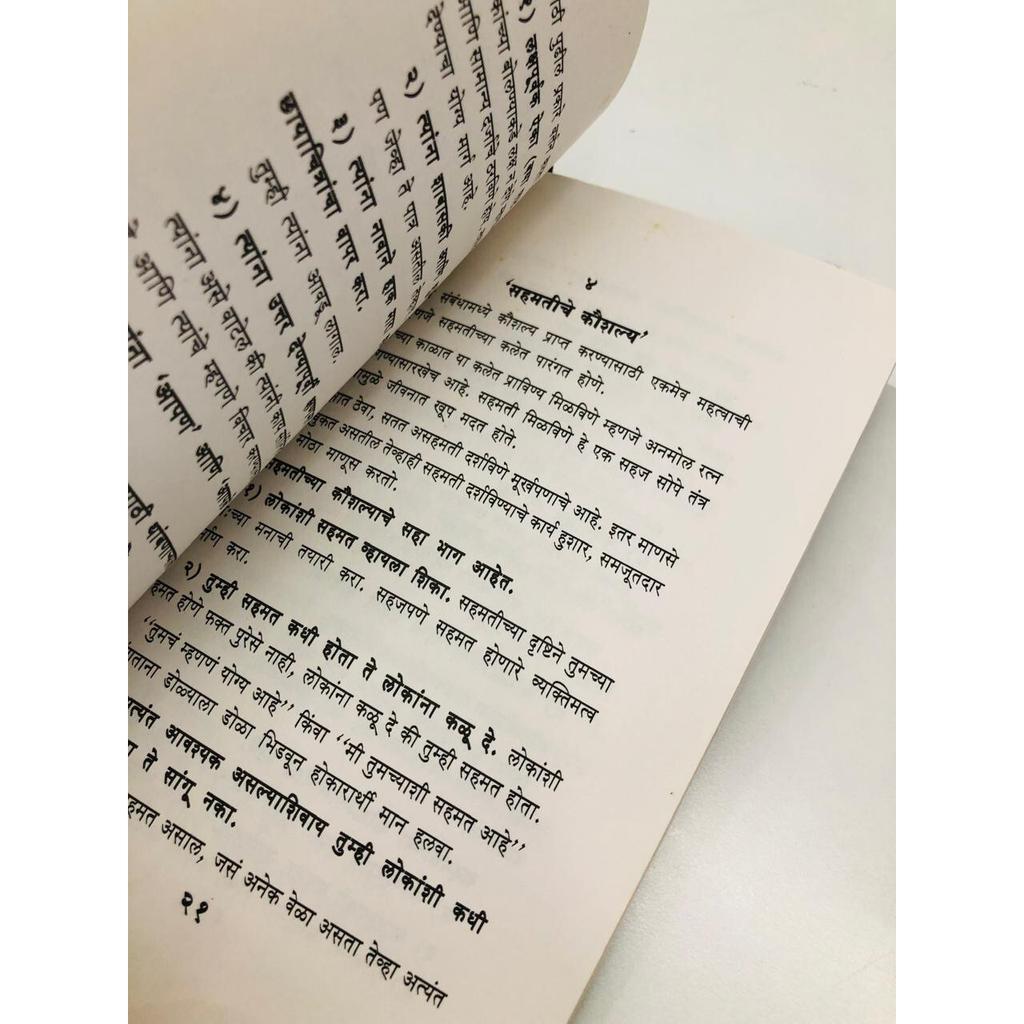 ठी पुढील प्रकारे
लक्षपूर्वक ऐका
कांच्या बोलण्याकडे लक्ष न
आणि सामान्य दर्जाचे
देण्याचा योग्य मार्ग आहे.
२) त्यांना शाबासकी
पण जेव्हा ते पात्र असतील
३) त्यांना नावाने हाक
छायाचित्रांचा वापर करा.
तुम्ही त्यांना आवडू लागाल.
४) त्यांना उत्तर देण्यापूर्वी
त्यांना असे वाटेल की त्यांनी
आणि त्यांचे म्हणणे विचार
'आपण' आणि
४
'सहमतीचे कौशल्य'
संबंधामध्ये कौशल्य प्राप्त करण्यासाठी एकमेव महत्वाची
णजे सहमतीच्या कलेत पारंगत होणे.
च्या काळात या कलेत प्राविण्य मिळविणे म्हणजे अनमोल रत्न
ण्यासारखेच आहे. सहमती मिळविणे हे एक सहज सोपे तंत्र
मुळे जीवनात खूप मदत होते.
ात ठेवा, सतत असहमती दर्शविणे मूर्खपणाचे आहे. इतर माणसे
चुकत असतील तेव्हाही सहमती दर्शविण्याचे कार्य हुशार, समजूतदार
मोठा माणूस करतो.
सहमतीच्या कौशल्याचे सहा भाग आहेत.
१) लोकांशी सहमत व्हायला शिका. सहमतीच्या दृष्टिने तुमच्या
च्या मनाची तयारी करा. सहजपणे सहमत होणारे व्यक्तिमत्व
र्माण करा.
२) तुम्ही सहमत कधी होता ते लोकांना कळू दे. लोकांशी
हमत होणे फक्त पुरेसे नाही, लोकांना कळू दे की तुम्ही सहमत होता.
"तुमचं म्हणणं योग्य आहे" किंवा "मी तुमच्याशी सहमत आहे"
गताना डोळ्याला डोळा भिडवून होकारार्थी मान हलवा.
अत्यंत आवश्यक असल्याशिवाय तुम्ही लोकांशी कधी
ते सांगू नका.
हमत असाल, जसं अनेक वेळा असता तेव्हा अत्यंत
२१